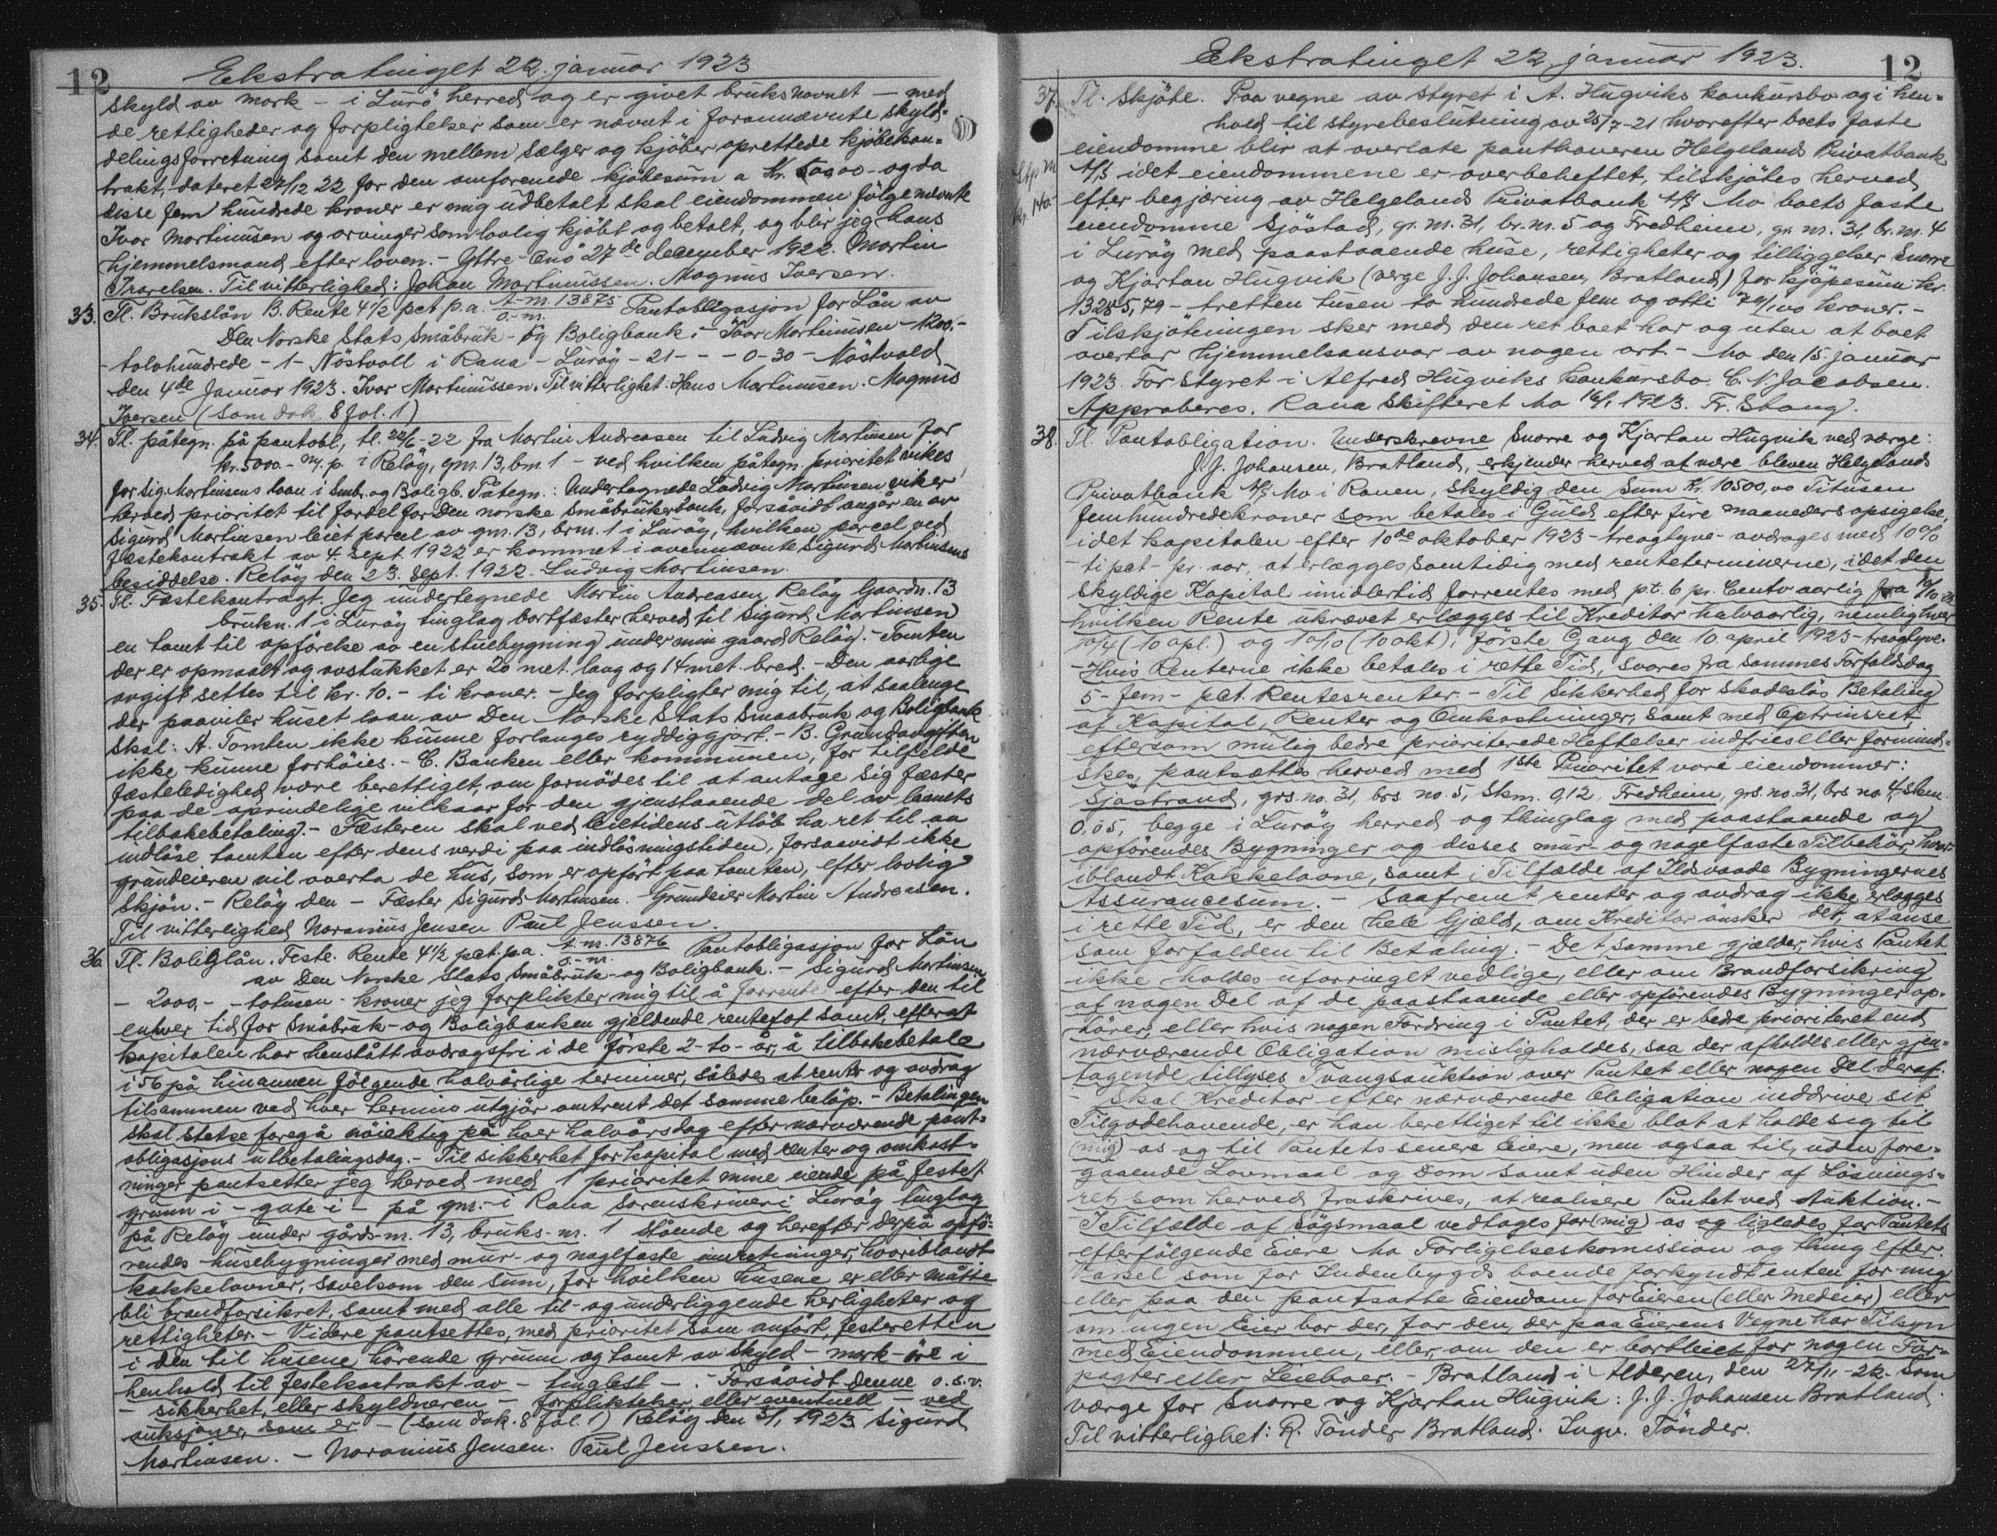 12
Ekstratinget 22. januar 1923
skyld av mork - i Lurö herred og er givet bruksnavnet - med
de rettigheder og forpligtelser som er nævnt i forannævnte skyld-
delingsforretning samt den mellem sælger og kjöber oprettede kjöbekon-
trakt, dateret 27/12 22 for den omforenede kjöbesum a Kr. 500,00 - og da
disse fem hundrede kroner er mig udbetalt skal eiendommen fölge nævnte
Ivar Martinusen og arvinger som lovlig kjöbt og betalt, og blir jeg hans
hjemmelsmand efter loven. - Yttre-Enö 27de december 1922. Martin
Ivarelsen. Til vitterlighed: Johan Martinussen. Magnus Iversen.
33. Tl. Brukslån B. Rente 4 1/2 pct. p.a. A-nr. 13875 o.-nr. Pantobligasjon for Lån av
Den Norske Stats Småbruk- og Boligbank. - Ivar Martinusen - 1200.-
- tolvhundrede - 1 - Nöstvoll i Rana - Luröy - 21 - - - 0-30 - Nöstvold
den 4de Januar 1923. Ivar Martinussen. Til vitterlighet: Hans Martinusen. Magnus
Iversen (som dok. 8 fol. 1)
34. Tl. påtegn. på pantobl., tl. 22/6-22 fra Martin Andreasen til Ludvig Martinsen for
kr. 5000.- m. p. i Relöy, gnr. 13, bnr. 1 - ved hvilken påtegn. prioritet vikes
for Sig. Martinsens laan i Smbr. og Boligb. Påtegn.: Undertegnede Ludvig Martinsen viker
herved prioritet til fordel for Den norske Småbrukerbank, forsåvidt angår en av
Sigurd Martinsen leiet parcel av gnr. 13, brnr. 1 i Luröy, hvilken parcel ved
fæstekontrakt av 4 sept. 1922 er kommet i ovennævnte Sigurd Martinsens
besiddelse. Relöy den 23. sept. 1922. Ludvig Martinsen.
35. Tl. Fæstekontragt. Jeg undertegnede Martin Andreasen Relöy Gaardn. 13
brukn. 1 i Luröy tinglag bortfæster herved til Sigurd Martinsen
en tomt til opförelse av en stuebygning under min gaard Relöy. - Tomten
der er opmaalt og avstukket er 20 met. lang og 14 met. bred. - Den aarlige
avgift settes til kr. 10.- ti kroner. - Jeg forpligter mig til, at saalænge
der paaviler huset laan av Den Norske Stats Smaabruk og Boligbank
skal: A. Tomten ikke kunne forlanges ryddiggjort. - B. Grundavgiften
ikke kunne forhöies. - C. Banken eller kommunen, for tilfelde
fæsteledighed være berettiget, om fornödes til at antage sig fæster
paa de oprindelige vilkaar for den gjenstaaende del av laanets
tilbakebetaling. - Fæsteren skal ved leietidens utlöb ha ret til aa
indlöse tomten efter dens verdi paa indlösningstiden, forsaavidt ikke
grundeieren vil overta de hus, som er opfört paa tomten, efter lovlig
skjön. - Relöy den - Fæster Sigurd Martinsen. Grundeier Martin Andreasen.
Til vitterlighed Noranius Jensen Paul Jenssen
36. Tl. Boliglån. Feste. Rente 4 1/2 pct. p.a. A-nr. 13876 o.-nr. Pantobligasjon for Lån
av Den Norske Stats Småbruk- og Boligbank. - Sigurd Martinsen
- 2000,- - totusen - kroner jeg forplikter mig til å forrente efter den til
enhver tid for Småbruk- og Boligbanken gjeldende rentefot samt, efterat
kapitalen har henstått avdragsfri i de förste 2-to-år, å tilbakebetale
i 56 på hinannen fölgende halvårlige terminer, således at renter og avdrag
tilsammen ved hver termin utgjör omtrent det samme belöp. - Betalingen
skal stetse foregå nöiaktig på hver halvårsdag efter nærværende pant-
obligasjons utbetalingsdag. - Til sikkerhet for kapital med renter og omkost-
ninger pantsetter jeg herved med 1 prioritet mine eiende på festet
grunn i - gate i - på gnr. - i Rana sorenskriveri Luröy tinglag
på Relöy under gårds-nr. 13, bruks-nr. 1 stående og herefter derpå opfö-
rendes husebygninger med mur- og naglfaste innretninger, hvoriblandt
kakkelovner, såvelsom den sum, for hvilken husene er eller måtte
bli brandforsikret, samt med alle til- og underliggende herligheter og
rettigheter. - Videre pantsettes, med prioritet som anfört, festeretten
i den til husene hörende grunn og tomt av skyld - mork - öre i
henhold til festekontrakt av - tinglest - . Forsåvidt denne o.s.v.
- sikkerhet, eller skyldneren - forplikteher, eller eventuell - ved
auksjoner, som er - (som dok. 8 fol. 1) Relöy den 3/1 1923 Sigurd
Martinsen. - Noranius Jensen. Paul Jenssen.
Ekstratinget 22. januar 1923.
12
37. Tl. Skjöte. Paa vegne av styret i A. Hugviks konkursbo og i hen-
hold til styrebeslutning av 25/7-21 hvorefter boets faste
eiendomme blir at overlate panthaveren Helgelands Privatbank
Stp. m
kr. 140.-
A/S idet eiendommene er overbeheftet, tilskjötes herved
efter begjæring av Helgelands Privatbank A/S Mo boets faste
eiendomme Sjöstad, gr. nr. 31, br. nr. 5 og Fredheim, gr. nr. 31, br. nr. 4
i Luröy med paastaaende huse, rettigheter og tilliggelser Snorre
og Kjartan Hugvik (verge J. J. Johansen, Bratland) for kjöpesum kr.
13285,79 - tretten tusen to hundrede fem og otti 79/100 kroner. -
Tilskjötningen sker med den ret boet har og uten at boet
overtar hjemmelsansvar av nogen art. - Mo den 15. januar
1923. For styret i Alfred Hugviks konkursbo. C. N. Jacobsen.
Approberes. Rana Skifteret Mo 16/1 1923. Fr. Stang.
38. Tl. Pantobligation. Underskrevne Snorre og Kjartan Hugvik ved værge:
J. J. Johansen, Bratland, erkjender herved at være bleven Helgelands
Privatbank A/S Mo i Ranen, skyldig den Sum Kr. 10500,00 Titusen
femhundrede kroner som betales i Guld efter fire maaneders opsigelse,
idet kapitalen efter 10de oktober 1923 - treogtyve - avdrages med 10%
- ti pct - pr. aar, at erlægges samtidig med renteterminerne, idet den
skyldige Kapital imidlertid forrentes med pt. 6 pr. Cento aarlig fra 10/10-22
hvilken Rente ukrævet erlægges til Kreditor halvaarlig, nemlig hver
10/4 (10 apl.) og 10/10 (10 okt), förste Gang den 10 april 1923 - treogtyve.
- Hvis Renterne ikke betales i rette Tid, svares fra sammes Forfaldsdag
5 - fem - pct. Rentesrenter. - Til Sikkerhed for skadeslös Betaling
af Kapital, Renter og Omkostninger, samt med Optrinsret,
eftersom mulig bedre prioriterede Heftelser indfries eller formind-
skes, pantsættes herved med 1ste Prioritet vore eiendommer:
Sjöstrand, grs. no. 31, brs no. 5, Skm. 0,12, Fredheim, grs. no. 31, brs no. 4, Skm.
0,05, begge i Luröy herred og thinglag med paastaaende og
opförendes Bygninger og disses mur- og nagelfaste Tilbehör, hvor-
iblandt Kakkelovne, samt i Tilfælde af Ildsvaade Bygningernes
Assurancesum. - Saafremt renter og avdrag ikke erlægges
i rette Tid, er den hele Gjæld, om Kreditor önsker det, at anse
som forfalden til Betaling. - Det samme gjælder, hvis Pantet
ikke holdes uforringet vedlige, eller om Brandforsikring
af nogen Del af de paastaaende eller opförendes Bygninger op-
hörer, eller hvis nogen Fordring i Pantet, der er bedre prioriteret end
nærværende Obligation misligholdes, saa der afholdes eller gjen-
tagende tillyses Tvangsauktion over Pantet eller nogen Del deraf.
- Skal Kreditor efter nærværende Obligation inddrive sit
Tilgodehavende, er han berettiget til ikke blot at holde sig til
(mig) os og til Pantets senere Eiere, men ogsaa til, uden fore-
gaaende Lovmaal og Dom samt uden Hinder af Lösnings-
ret som herved fraskrives, at realisere Pantet ved Auktion. -
I Tilfælde af Sögsmaal vedtages for (mig) os og ligledes for Pantets
efterfölgende Eiere Mo Forligelseskomission og thing efter
Varsel som for Indenbygds boende forkyndt enten for mig
eller paa den pantsatte Eiendom for Eieren (eller Medeier) eller
om ingen Eier bor der, for den, der paa Eierens Vegne har Tilsyn
med Eiendommen, eller, om den er bortleiet, for nogen For-
pagter eller Leieboer. - Bratland i Alderen, den 27/11-22. Som
værge for Snorre og Kjartan Hugvik: J. J. Johansen Bratland.
Til vitterlighet: R. Tönder Bratland. Ingv. Tönder.